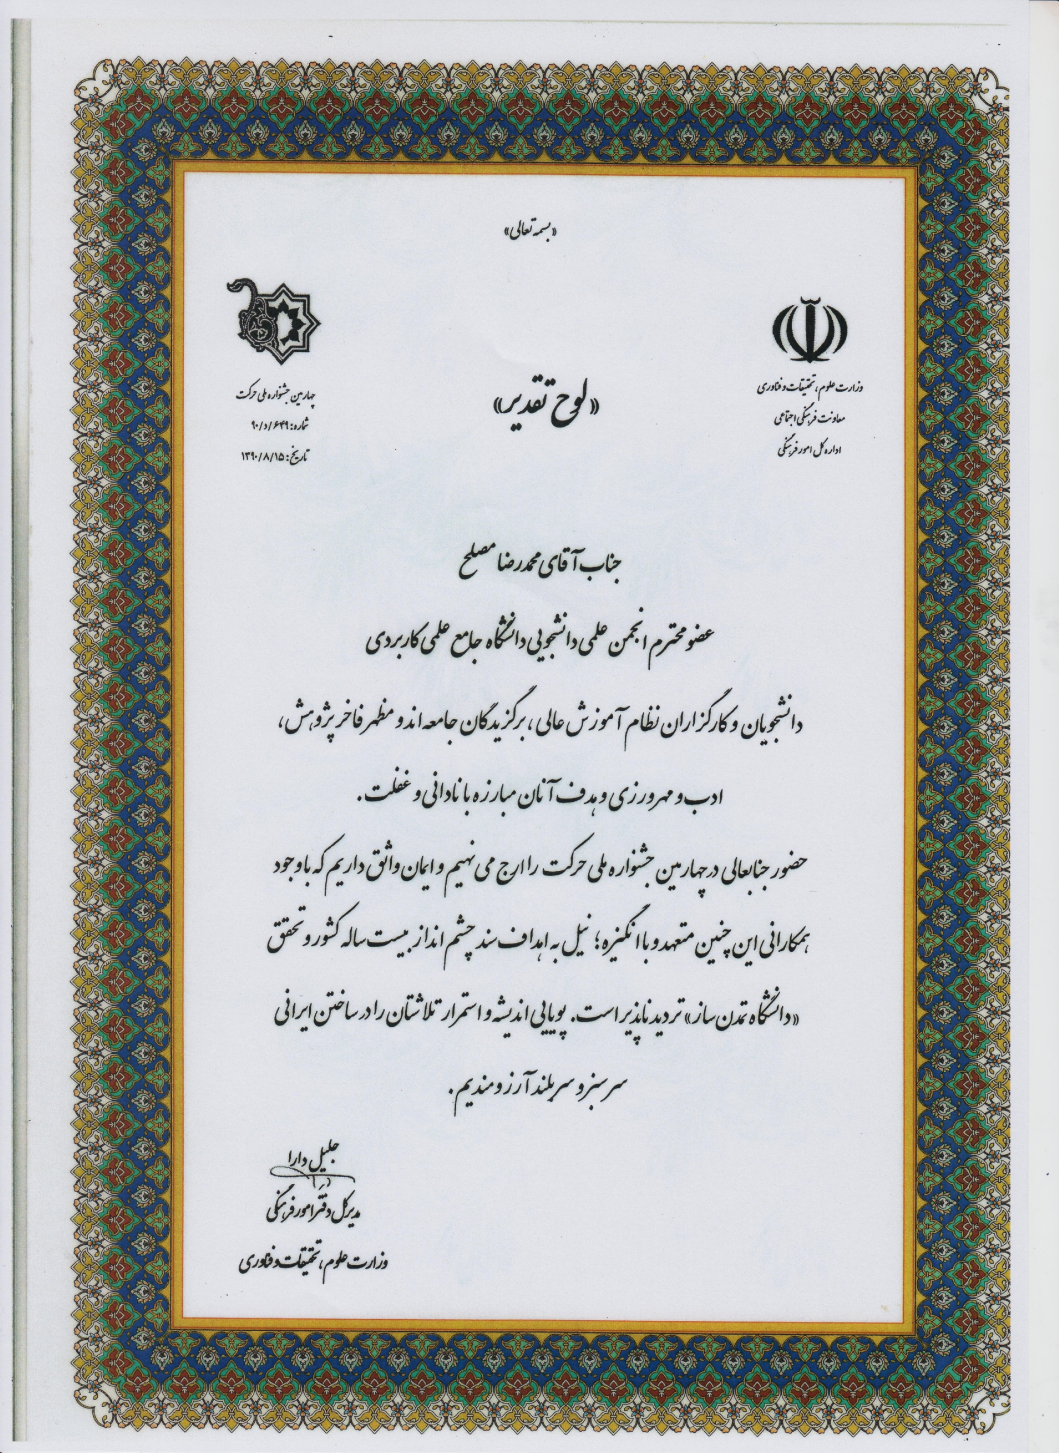 «بسمه تعالی»
وزارت علوم، تحقیقات و فناوری
معاونت فرهنگی اجتماعی
اداره کل امور فرهنگی
«لوح تقدیر»
چهارمین جشنواره ملی حرکت
شماره: ۶۴۹/د/۹۰
تاریخ: ۱۳۹۰/۸/۱۵
جناب آقای محمدرضا مصلح
عضو محترم انجمن علمی دانشجویی دانشگاه جامع علمی کاربردی
دانشجویان و کارگزاران نظام آموزش عالی، برگزیدگان جامعه اند و مظهر فاخر پژوهش،
ادب و مهرورزی و هدف آنان مبارزه با نادانی و غفلت.
حضور جنابعالی در چهارمین جشنواره ملی حرکت را ارج می نهیم و ایمان واثق داریم که با وجود
همکارانی این چنین متعهد و با انگیزه؛ نیل به اهداف سند چشم انداز بیست ساله کشور و تحقق
«دانشگاه تمدن ساز» تردید ناپذیر است. پویایی اندیشه و استمرار تلاشتان را در ساختن ایرانی
سرسبز و سربلند آرزومندیم.
جلیل دارا
مدیرکل دفتر امور فرهنگی
وزارت علوم، تحقیقات و فناوری